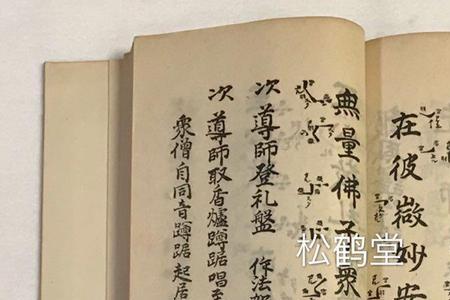 在彼微妙安
無量佛子衆
次 導師登礼盤 作法
次 導師取香爐蹲踞唱
衆僧自同音蹲踞起居
松鹤堂